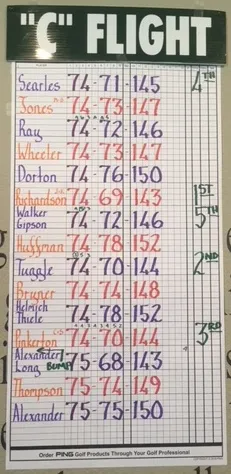 "C" FLIGHT
Searles 74-71-145 4TH
Jones 74-73-147
Ray 74-72-146
Wheeler 74-73-147
Dorton 74-76-150
Richardson 74 69-143 1ST
Walker
Gipson 74-72-146 5TH
Huffman 74-78-152
Tuggle 74-70-144 2ND
Bryner 74-74-148
Helmich
Thiele 74-78-152
Pinkerton 74-70-144 3RD
Alexander/
Long BUMP 75-68-143
Thompson 75-74-149
Alexander 75-75-150
Order PING Golf Products Through Your Golf Professional